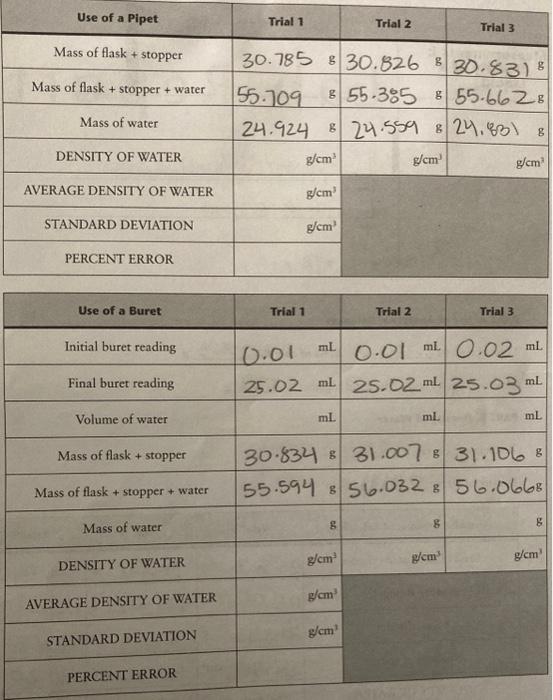 Use of a Pipet Trial 1 Trial 2 Trial 3
Mass of flask + stopper 30.785 g 30.826 g 30.831 g
Mass of flask + stopper + water 55.709 g 55.385 g 55.662 g
Mass of water 24.924 g 24.559 g 24.831 g
DENSITY OF WATER g/cm³ g/cm³ g/cm³
AVERAGE DENSITY OF WATER g/cm³
STANDARD DEVIATION g/cm³
PERCENT ERROR
Use of a Buret Trial 1 Trial 2 Trial 3
Initial buret reading 0.01 mL 0.01 mL 0.02 mL
Final buret reading 25.02 mL 25.02 mL 25.03 mL
Volume of water mL mL mL
Mass of flask + stopper 30.834 g 31.007 g 31.106 g
Mass of flask + stopper + water 55.594 g 56.032 g 56.066 g
Mass of water g g g
DENSITY OF WATER g/cm³ g/cm³ g/cm³
AVERAGE DENSITY OF WATER g/cm³
STANDARD DEVIATION g/cm³
PERCENT ERROR